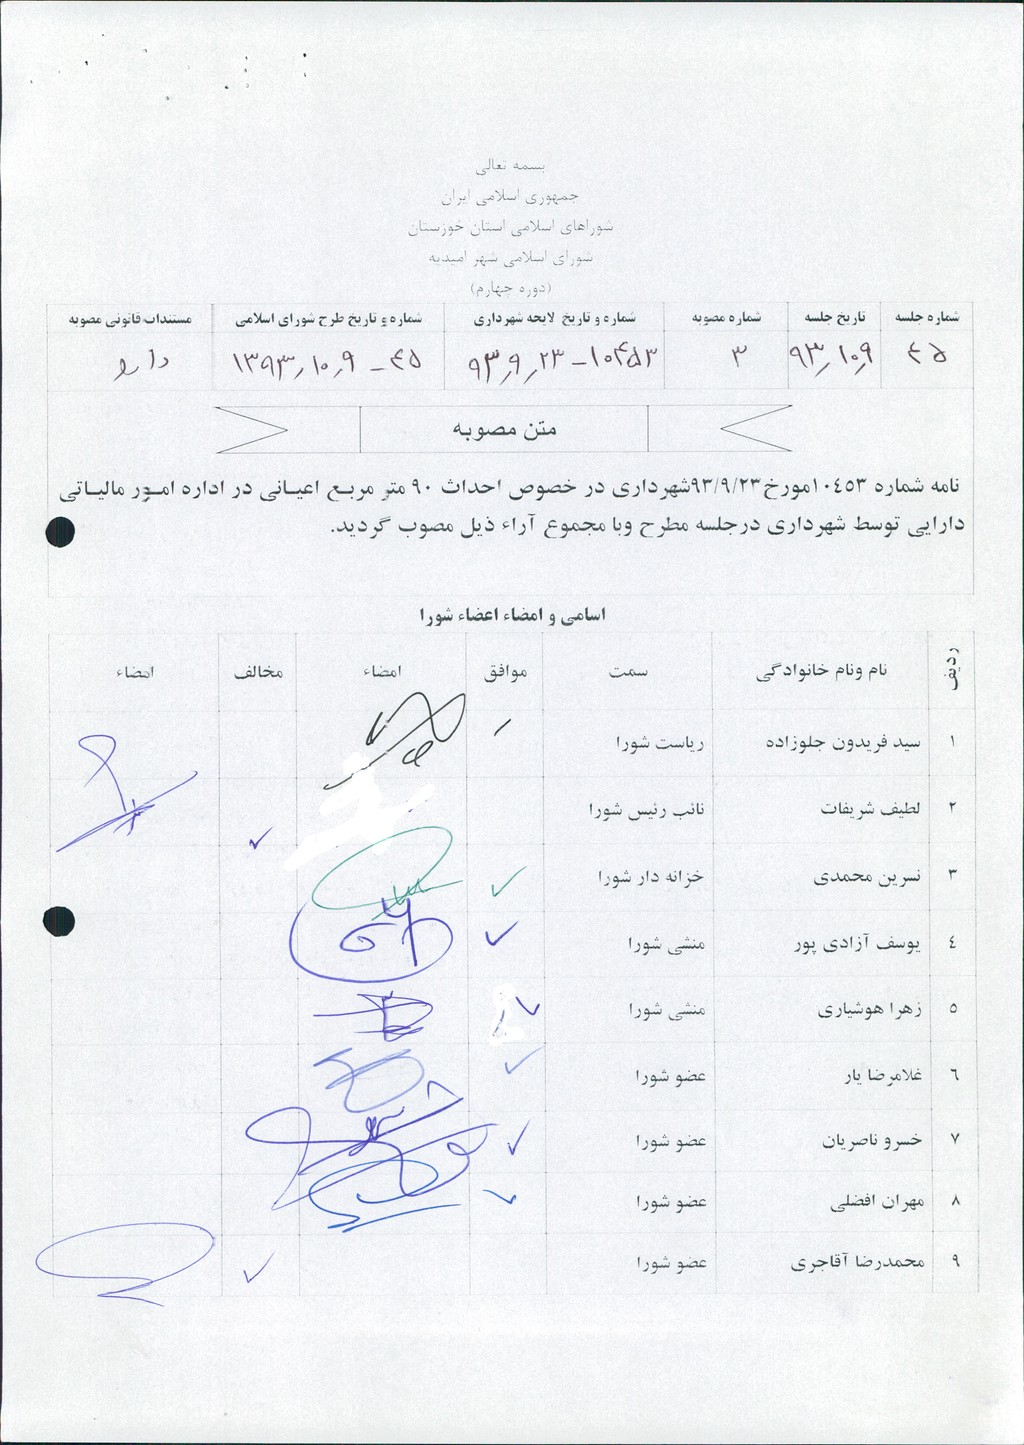 بسمه تعالی
جمهوری اسلامی ایران
شوراهای اسلامی استان خوزستان
شورای اسلامی شهر امیدیه
(دوره چهارم)
شماره جلسه تاریخ جلسه شماره مصوبه شماره و تاریخ لایحه شهرداری شماره و تاریخ طرح شورای اسلامی مستندات قانونی مصوبه
۴۵ ۹۳/۱۰/۹ ۳ ۱۰۴۵۳ – ۹۳/۹/۲۳ ۴۵ – ۱۳۹۳/۱۰/۹ دارد
متن مصوبه
نامه شماره ۱۰٤۵۳مورخ۹۳/۹/۲۳شهرداری در خصوص احداث ۹۰ متر مربع اعیانی در اداره امور مالیاتی
دارایی توسط شهرداری درجلسه مطرح وبا مجموع آراء ذیل مصوب گردید.
اسامی و امضاء اعضاء شورا
ردیف نام ونام خانوادگی سمت موافق امضاء مخالف امضاء
۱ سید فریدون جلوزاده ریاست شورا
۲ لطیف شریفات نائب رئیس شورا
۳ نسرین محمدی خزانه دار شورا
٤ یوسف آزادی پور منشی شورا
۵ زهرا هوشیاری منشی شورا
٦ غلامرضا یار عضو شورا
۷ خسرو ناصریان عضو شورا
۸ مهران افضلی عضو شورا
۹ محمدرضا آقاجری عضو شورا